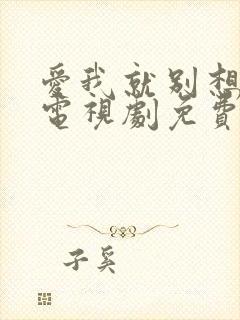 愛我就別想
電視劇免費
子奚